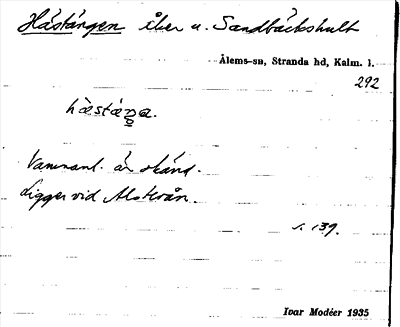 Hästängen åker u. Sandbäckshult
Ålems-sn, Stranda hd, Kalm. l.
292
hæstæŋa.
Namnanl. är okänd.
Ligger vid Alsterån.
s. 139.
Ivar Modéer 1935